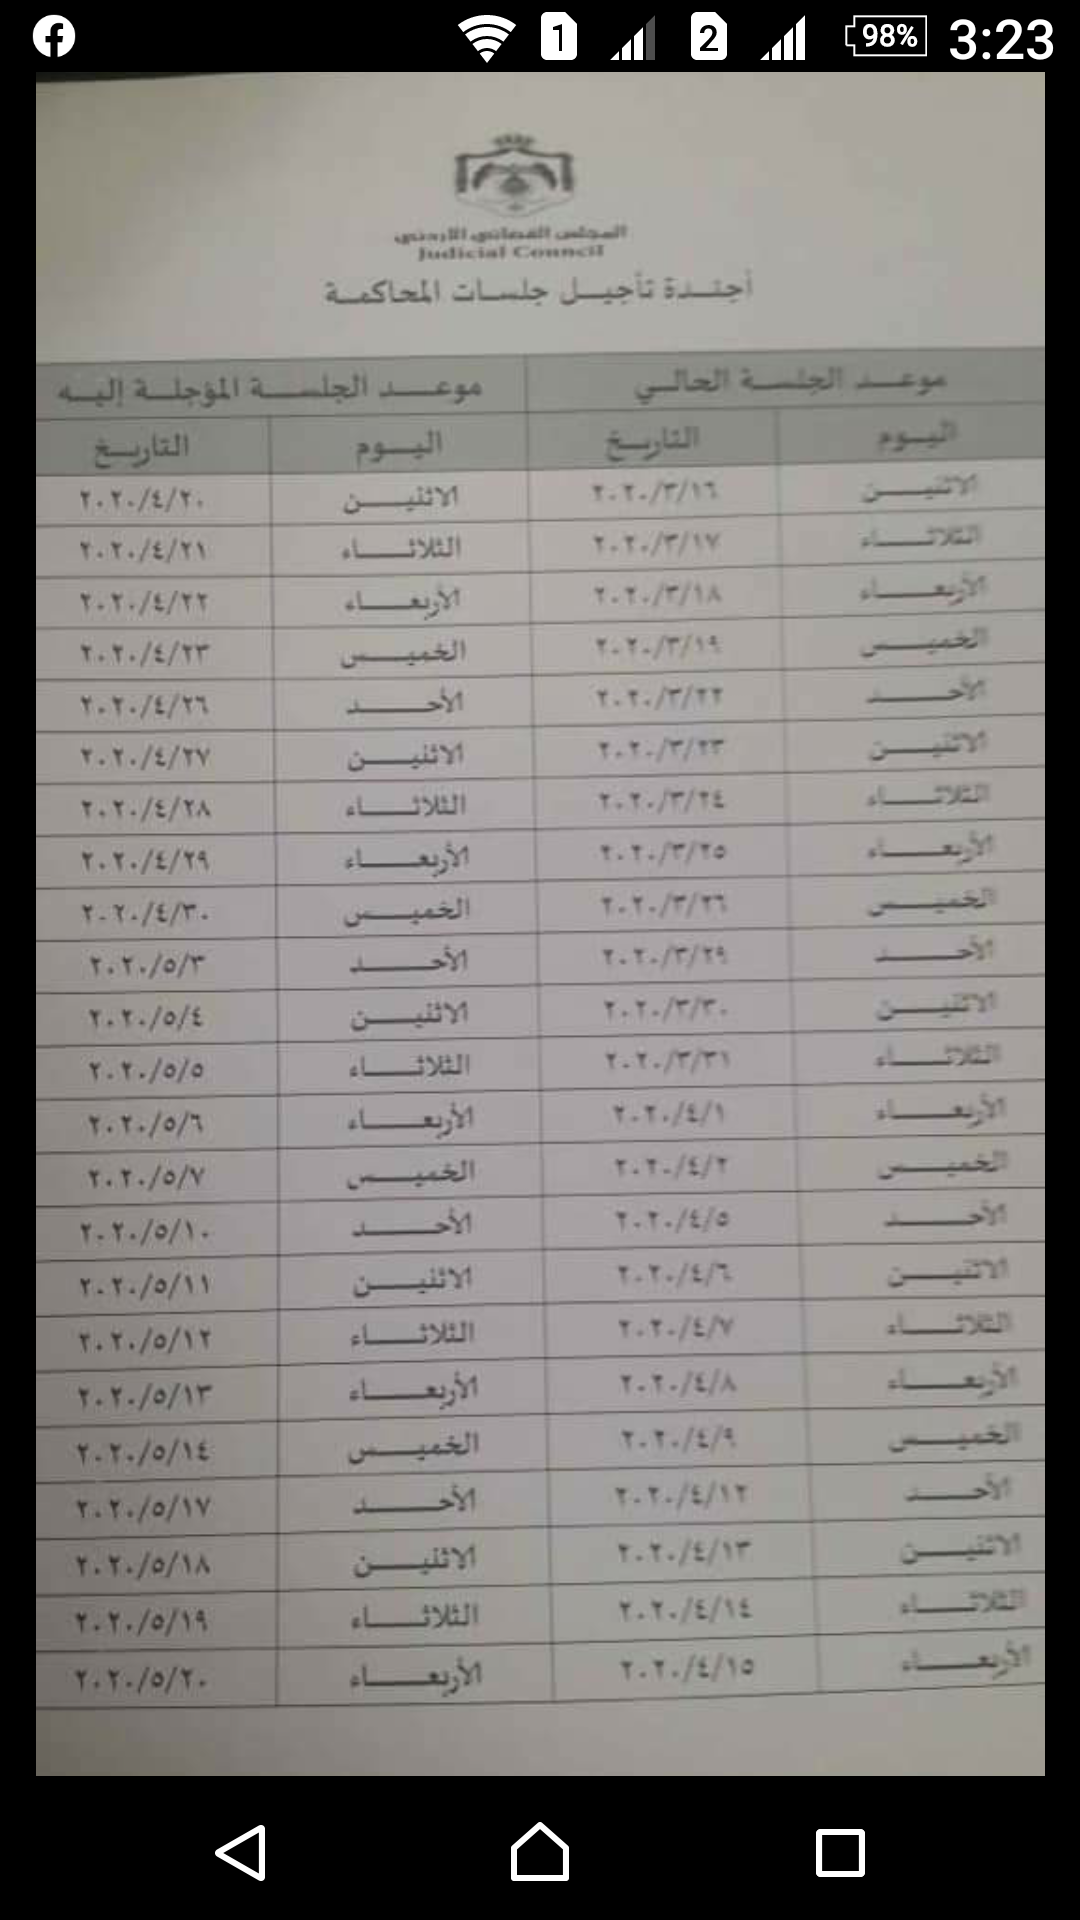 1 2 98% 3:23
المجلس القضائي الأردني
Judicial Council
أجندة تأجيل جلسات المحاكمة
موعد الجلسة الحالي موعد الجلسة المؤجلة إليه
اليوم التاريخ اليوم التاريخ
الاثنين ٢٠٢٠/٣/١٦ الاثنين ٢٠٢٠/٤/٢٠
الثلاثاء ٢٠٢٠/٣/١٧ الثلاثاء ٢٠٢٠/٤/٢١
الأربعاء ٢٠٢٠/٣/١٨ الأربعاء ٢٠٢٠/٤/٢٢
الخميس ٢٠٢٠/٣/١٩ الخميس ٢٠٢٠/٤/٢٣
الأحد ٢٠٢٠/٣/٢٢ الأحد ٢٠٢٠/٤/٢٦
الاثنين ٢٠٢٠/٣/٢٣ الاثنين ٢٠٢٠/٤/٢٧
الثلاثاء ٢٠٢٠/٣/٢٤ الثلاثاء ٢٠٢٠/٤/٢٨
الأربعاء ٢٠٢٠/٣/٢٥ الأربعاء ٢٠٢٠/٤/٢٩
الخميس ٢٠٢٠/٣/٢٦ الخميس ٢٠٢٠/٤/٣٠
الأحد ٢٠٢٠/٣/٢٩ الأحد ٢٠٢٠/٥/٣
الاثنين ٢٠٢٠/٣/٣٠ الاثنين ٢٠٢٠/٥/٤
الثلاثاء ٢٠٢٠/٣/٣١ الثلاثاء ٢٠٢٠/٥/٥
الأربعاء ٢٠٢٠/٤/١ الأربعاء ٢٠٢٠/٥/٦
الخميس ٢٠٢٠/٤/٢ الخميس ٢٠٢٠/٥/٧
الأحد ٢٠٢٠/٤/٥ الأحد ٢٠٢٠/٥/١٠
الاثنين ٢٠٢٠/٤/٦ الاثنين ٢٠٢٠/٥/١١
الثلاثاء ٢٠٢٠/٤/٧ الثلاثاء ٢٠٢٠/٥/١٢
الأربعاء ٢٠٢٠/٤/٨ الأربعاء ٢٠٢٠/٥/١٣
الخميس ٢٠٢٠/٤/٩ الخميس ٢٠٢٠/٥/١٤
الأحد ٢٠٢٠/٤/١٢ الأحد ٢٠٢٠/٥/١٧
الاثنين ٢٠٢٠/٤/١٣ الاثنين ٢٠٢٠/٥/١٨
الثلاثاء ٢٠٢٠/٤/١٤ الثلاثاء ٢٠٢٠/٥/١٩
الأربعاء ٢٠٢٠/٤/١٥ الأربعاء ٢٠٢٠/٥/٢٠